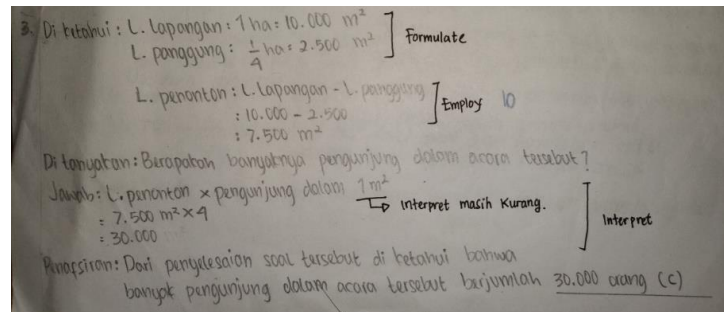 3. Di ketahui : L. Lapangan : 1 ha : 10.000 m²
L. panggung : 1/4 ha : 2.500 m²
Formulate
L. penonton : L. Lapangan - L. panggung
: 10.000 - 2.500
: 7.500 m²
Employ 10
Di tanyakan : Berapakah banyaknya pengunjung dalam acara tersebut ?
Jawab : L. penonton x pengunjung dalam 1 m²
= 7.500 m² x 4
= 30.000
Interpret masih kurang.
Interpret
Penafsiran : Dari penyelesaian soal tersebut di ketahui bahwa
banyak pengunjung dalam acara tersebut berjumlah 30.000 orang (C)